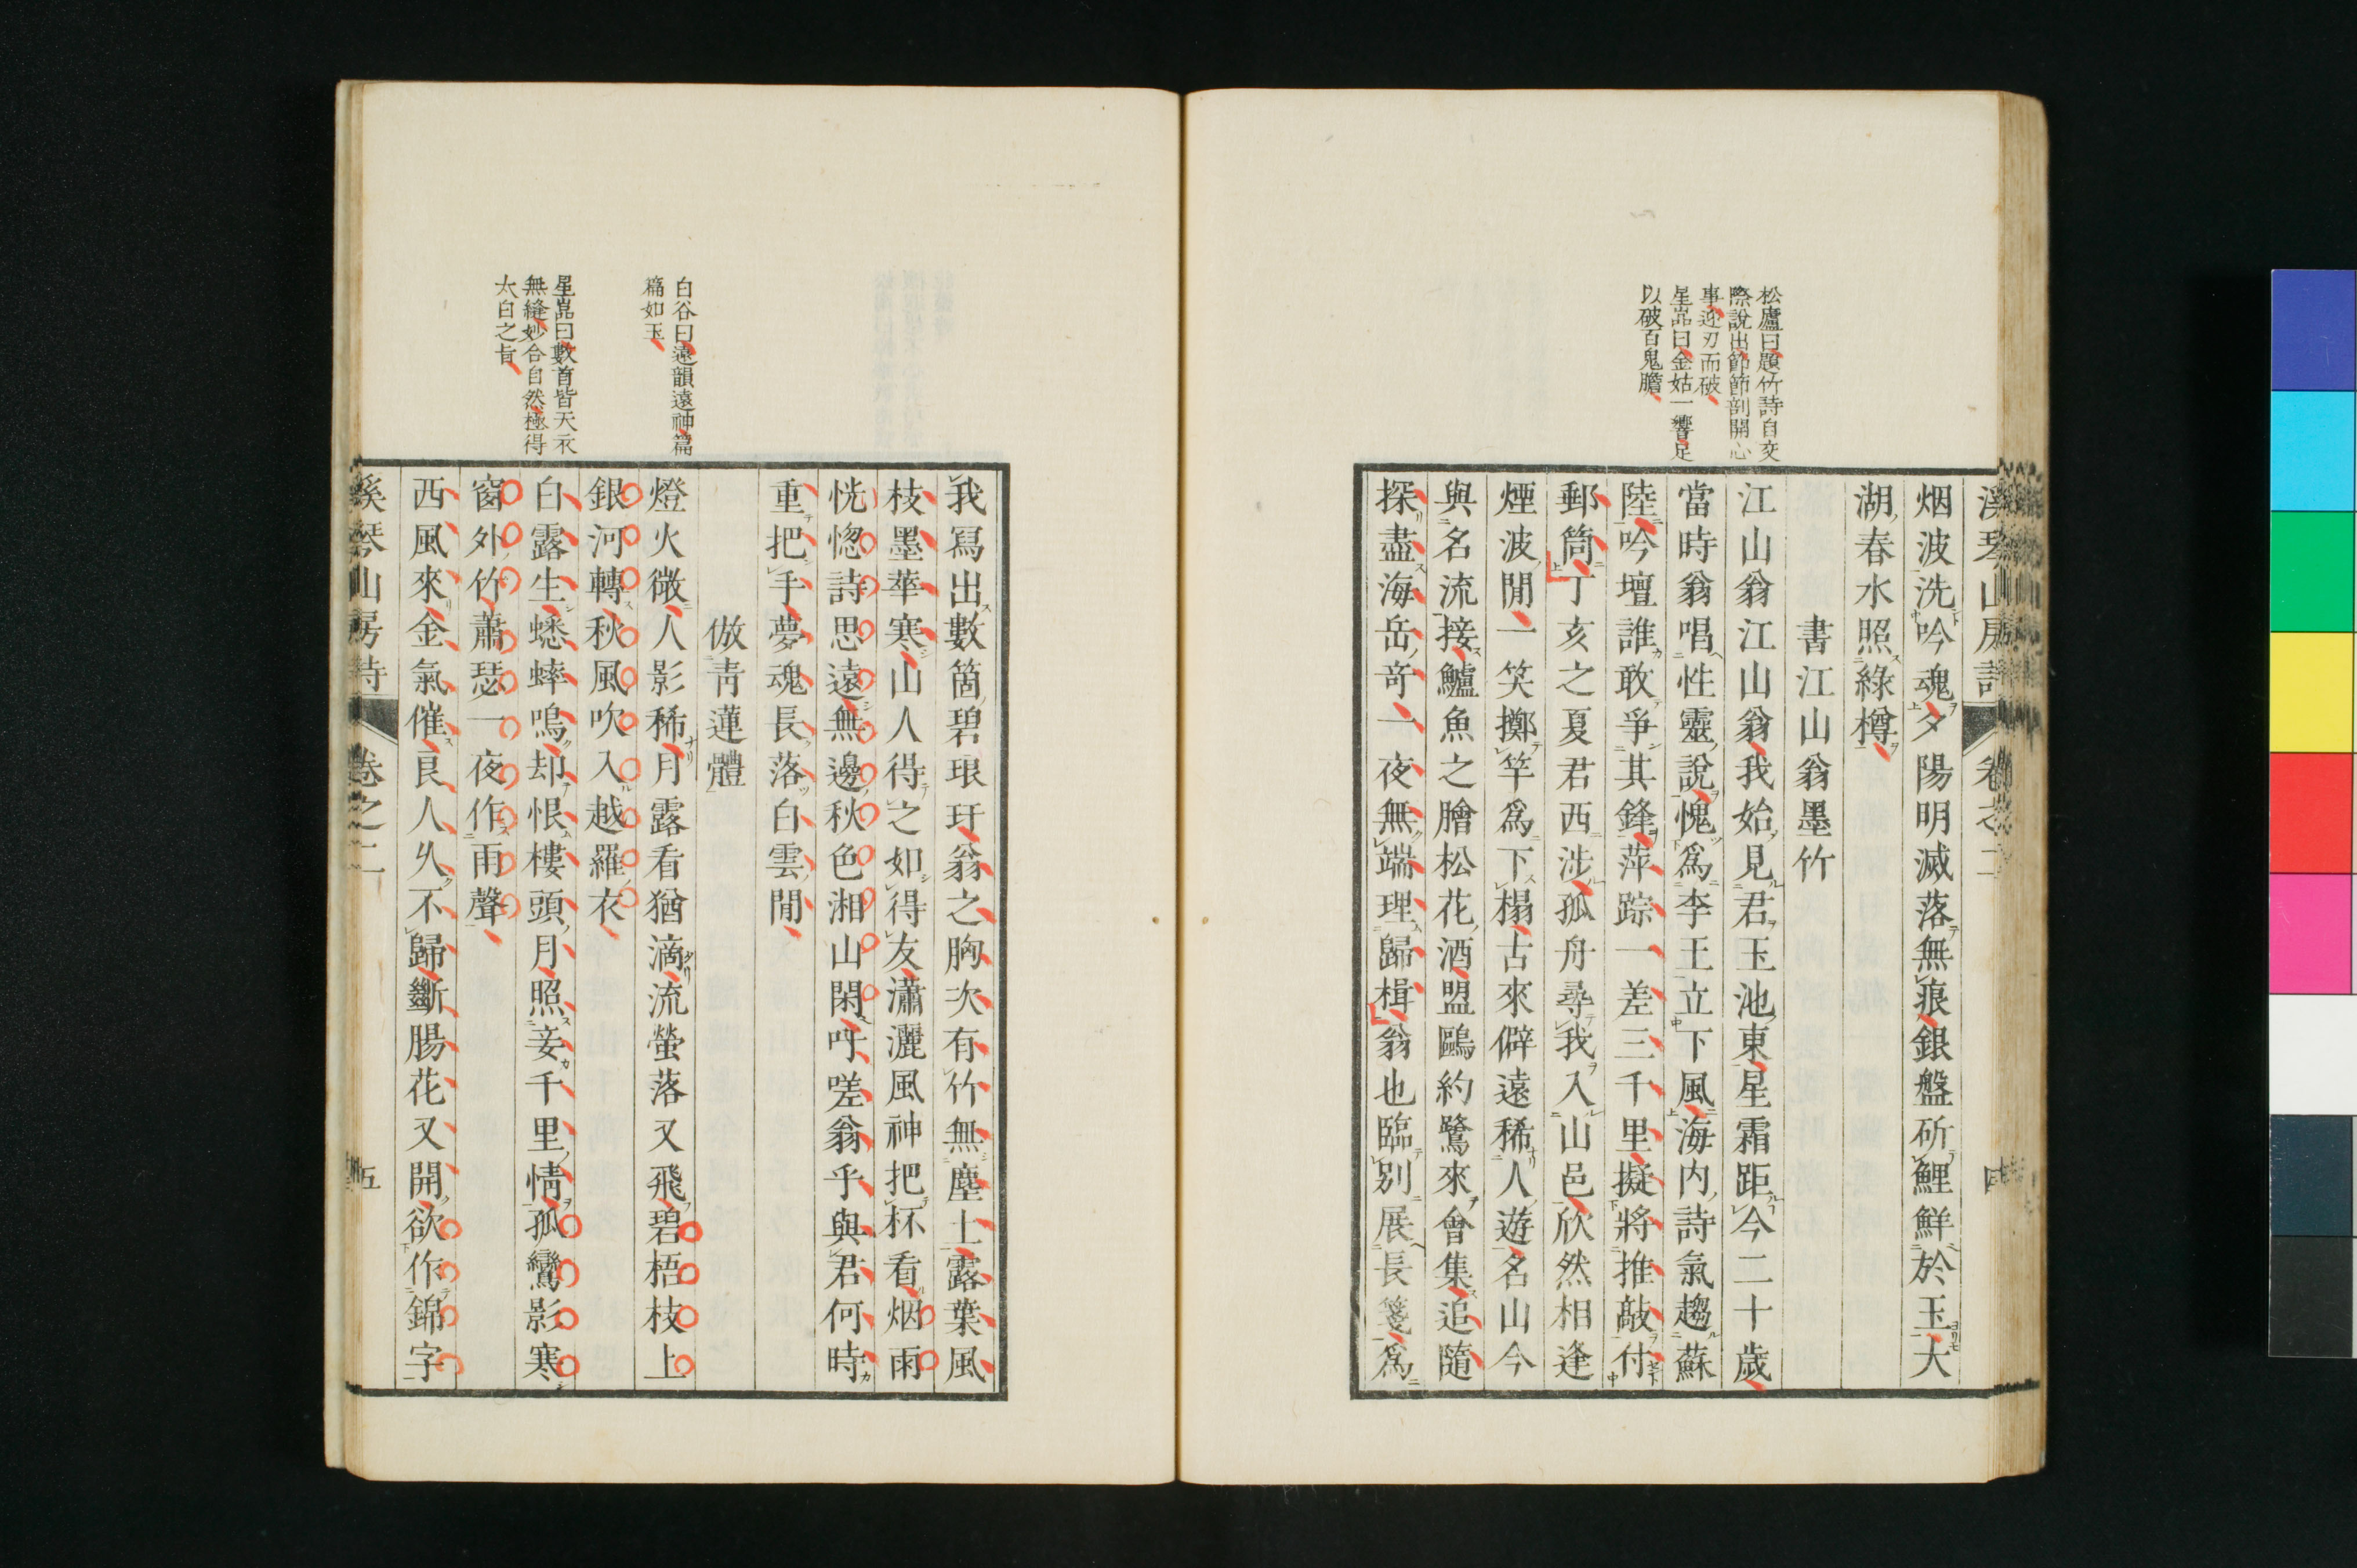 溪琴山房詩 卷之二 四
松廬曰題竹詩自交
際說出節節剖開心
事迎刃而破
星嵓曰金姑一響足
以破百鬼膽
烟波洗吟魂夕陽明滅落無痕銀盤斫鯉鮮於玉大
湖春水照綠樽
書江山翁墨竹
江山翁江山翁我始見君玉池東星霜距今二十歲
當時翁唱性靈說愧爲李王立下風海内詩氣趨蘇
陸吟壇誰敢爭其鋒萍踪一差三千里擬將推敲付
郵筒丁亥之夏君西涉孤舟尋我入山邑欣然相逢
煙波閒一笑擲竿爲下榻古來僻遠稀人遊名山今
與名流接鱸魚之膾松花酒盟鷗約鷺來會集追隨
探盡海岳奇一夜無端理歸楫翁也臨別展長箋爲
白谷曰遠韻遠神篇
篇如玉
星嵓曰數首皆天衣
無縫妙合自然極得
太白之旨
我寫出數箇碧琅玕翁之胸次有竹無塵土露葉風
枝墨華寒山人得之如得友瀟灑風神把杯看烟雨
恍惚詩思遠無邊秋色湘山閑吁嗟翁乎與君何時
重把手夢魂長落白雲閒
倣青蓮體
燈火微人影稀月露看猶滴流螢落又飛碧梧枝上
銀河轉秋風吹入越羅衣
白露生蟋蟀鳴却恨樓頭月照妾千里情孤鸞影寒
窗外竹蕭瑟一夜作雨聲
西風來金氣催良人久不歸斷腸花又開欲作錦字
溪琴山房詩 卷之二 五